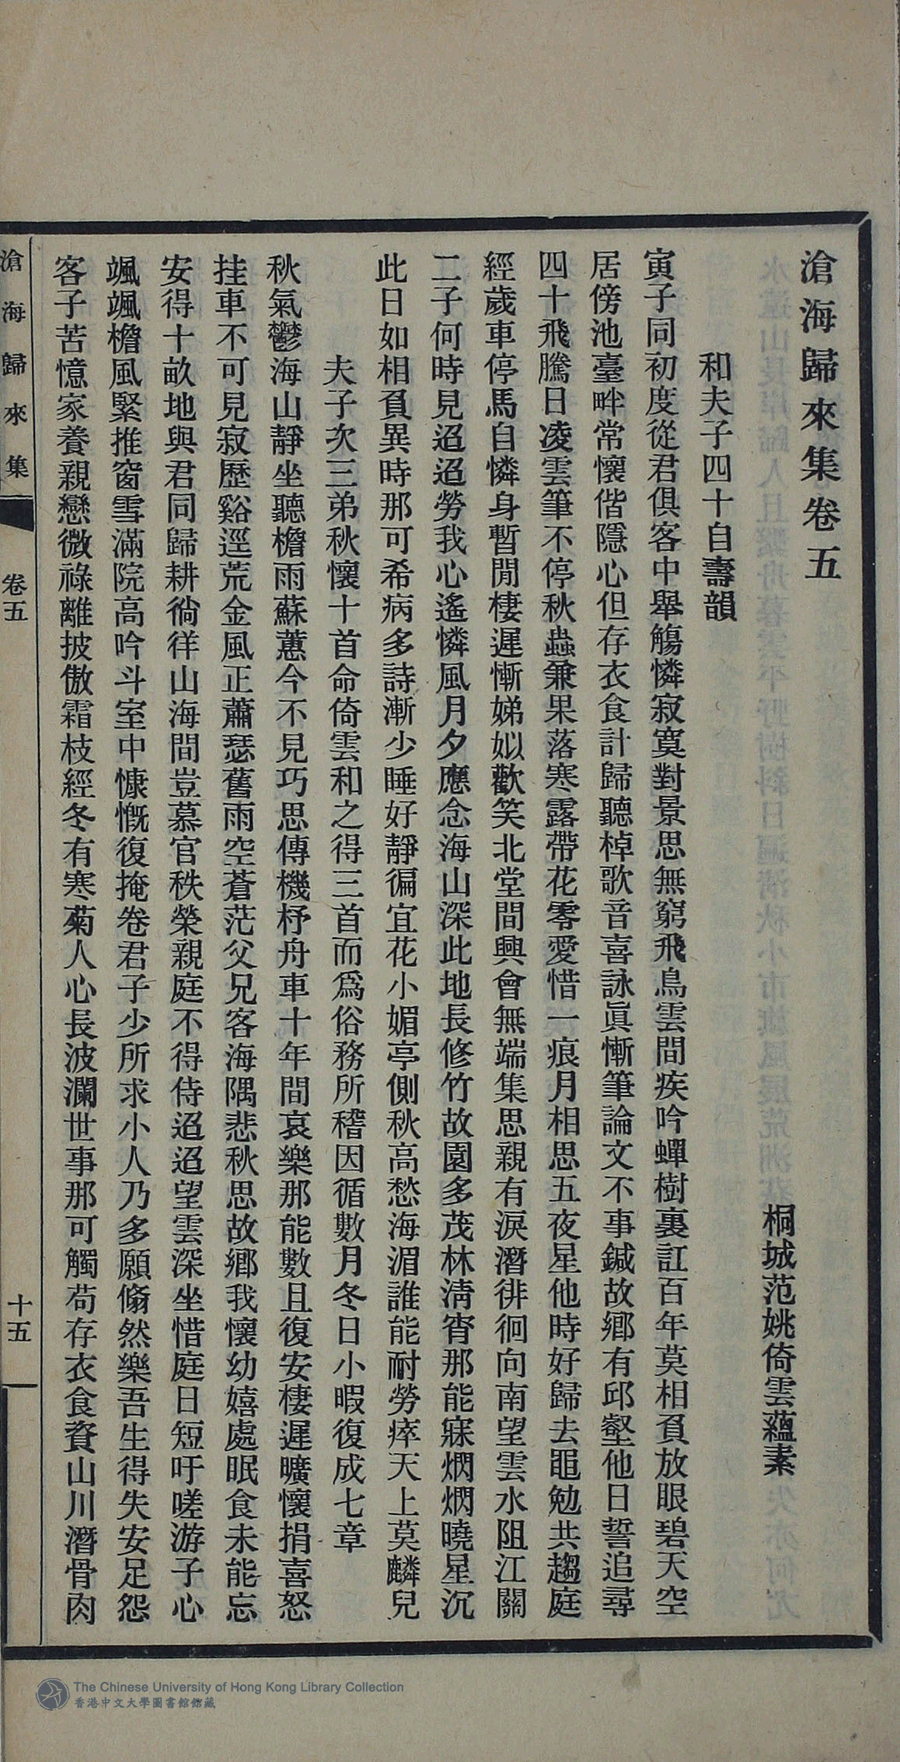 滄海歸來集卷五
桐城范姚倚雲蘊素
和夫子四十自壽韻
寅子同初度從君俱客中舉觴憐寂寞對景思無窮飛鳥雲間疾吟蟬樹裏訌百年莫相負放眼碧天空
居傍池臺畔常懷偕隱心但存衣食計歸聽棹歌音喜詠眞慚筆論文不事鍼故鄉有邱壑他日誓追尋
四十飛騰日凌雲筆不停秋蟲兼果落寒露帶花零愛惜一痕月相思五夜星他時好歸去黽勉共趨庭
經歲車停馬自憐身暫閒棲遲慚娣姒歡笑北堂間興會無端集思親有淚潸徘徊向南望雲水阻江關
二子何時見迢迢勞我心遙憐風月夕應念海山深此地長修竹故園多茂林淸宵那能寐烱烱曉星沉
此日如相負異時那可希病多詩漸少睡好靜徧宜花小媚亭側秋高愁海湄誰能耐勞瘁天上莫麟兒
夫子次三弟秋懷十首命倚雲和之得三首而爲俗務所稽因循數月冬日小暇復成七章
秋氣鬱海山靜坐聽檐雨蘇蕙今不見巧思傳機杼舟車十年間哀樂那能數且復安棲遲曠懷捐喜怒
挂車不可見寂歷谿逕荒金風正蕭瑟舊雨空蒼茫父兄客海隅悲秋思故鄉我懷幼嬉處眠食未能忘
安得十畝地與君同歸耕徜徉山海間豈慕官秩榮親庭不得侍迢迢望雲深坐惜庭日短吁嗟游子心
颯颯檐風緊推窗雪滿院高吟斗室中慷慨復掩卷君子少所求小人乃多願翛然樂吾生得失安足怨
客子苦憶家養親戀微祿離披傲霜枝經冬有寒菊人心長波瀾世事那可觸苟存衣食資山川潛骨肉
滄海歸來集
卷五
十五
The Chinese University of Hong Kong Library Collection
香港中文大學圖書館館藏